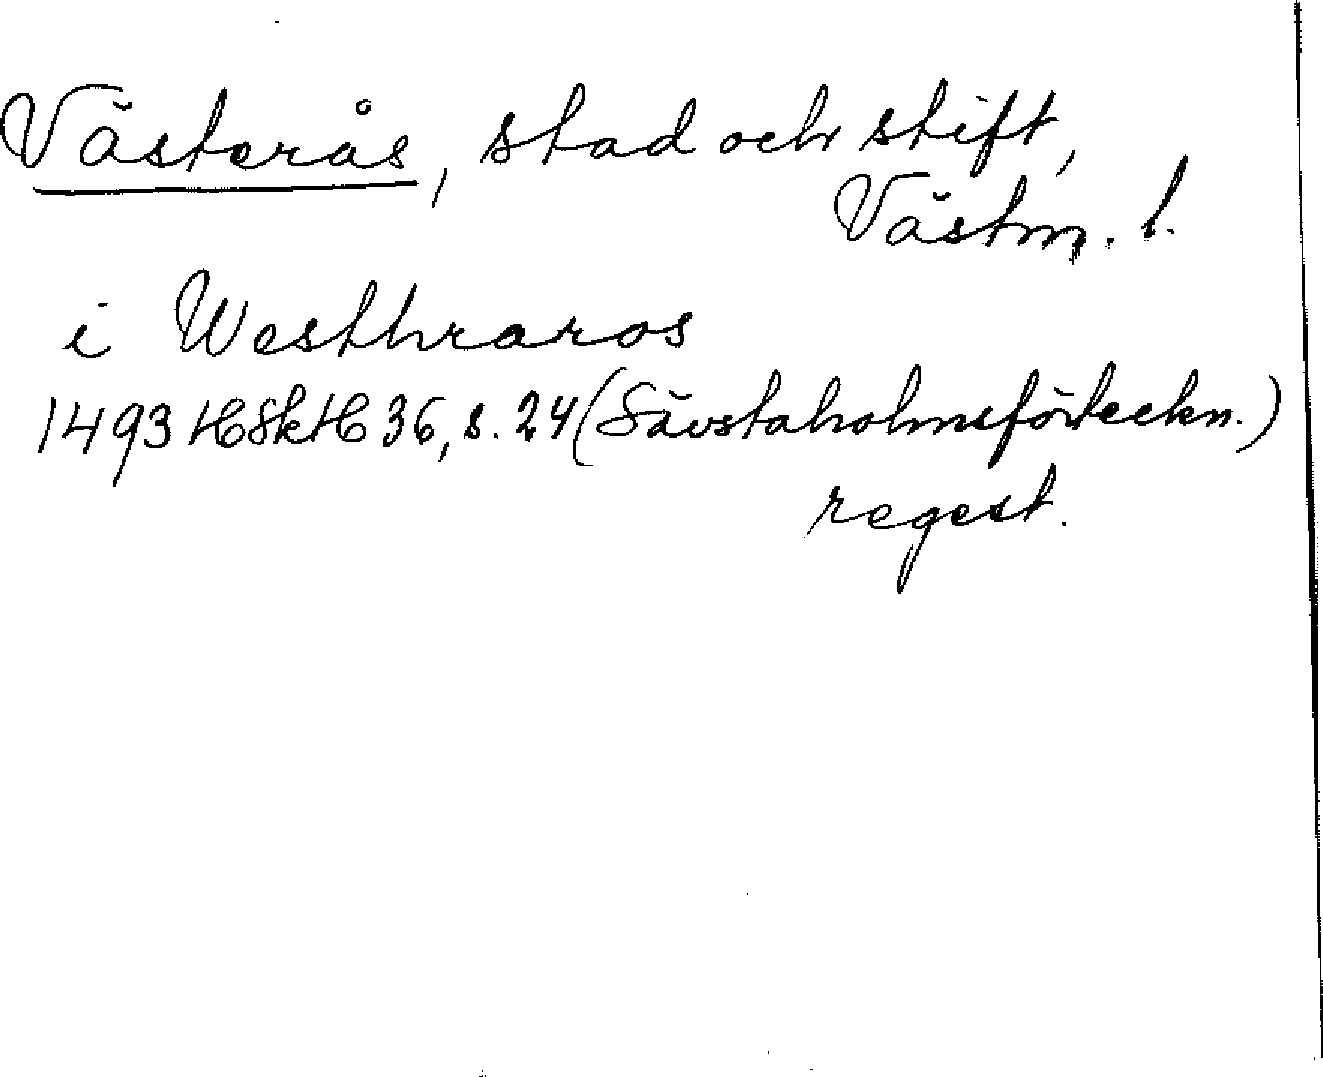 Västerås, stad och stift,
Västm. l.
i Westhraros
1493 HSkH 36, s. 24 (Sävstaholmsförteckn.)
regest.